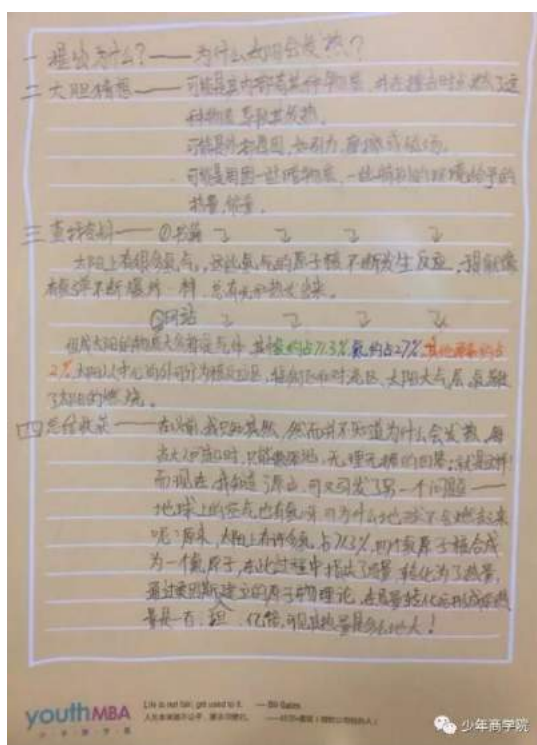 一 提出为什么?——为什么太阳会发热?
二 大胆猜想——可能是其内部有某种物质,并在
种物质导致其发热。
可能是外部原因,如引力、磁场。
可能是周围一些暗物质,一些特别的环境给予的
热量、能量。
三 查找资料——①书籍
太阳上有很多氢气,这些氢气的原子核不断发生反应,
不断爆炸一样,总有光和热发出来。
②网站
组成太阳的物质大多都是气体,其中氢约占71.3%氦约占27%,其他元素约占
2%太阳从中心向外可分为核反应区、辐射区和对流区、太阳大气层,
了太阳的燃烧。
四 总结收获——在以前,我只知其然,然而并不知道为什么会发热,每
当人们问我时,只能 地、无理无据的回答:就是这样!
而现在,我知道了原由,可又引发了另一个问题——
地球上的空气也有氢,为什么地球不会燃烧起来
呢?原来,太阳上有许多氢,占71.3%,四个氢原子核合成
为一个氦原子,在此过程中损失了质量,转化为了热量,
通过爱因斯坦建立的原子物理论,
量是一百 亿倍,可见其热量是多么地大!
youthMBA
少年商学院
Life is not fair; get used to it. — Bill Gates
少年商学院